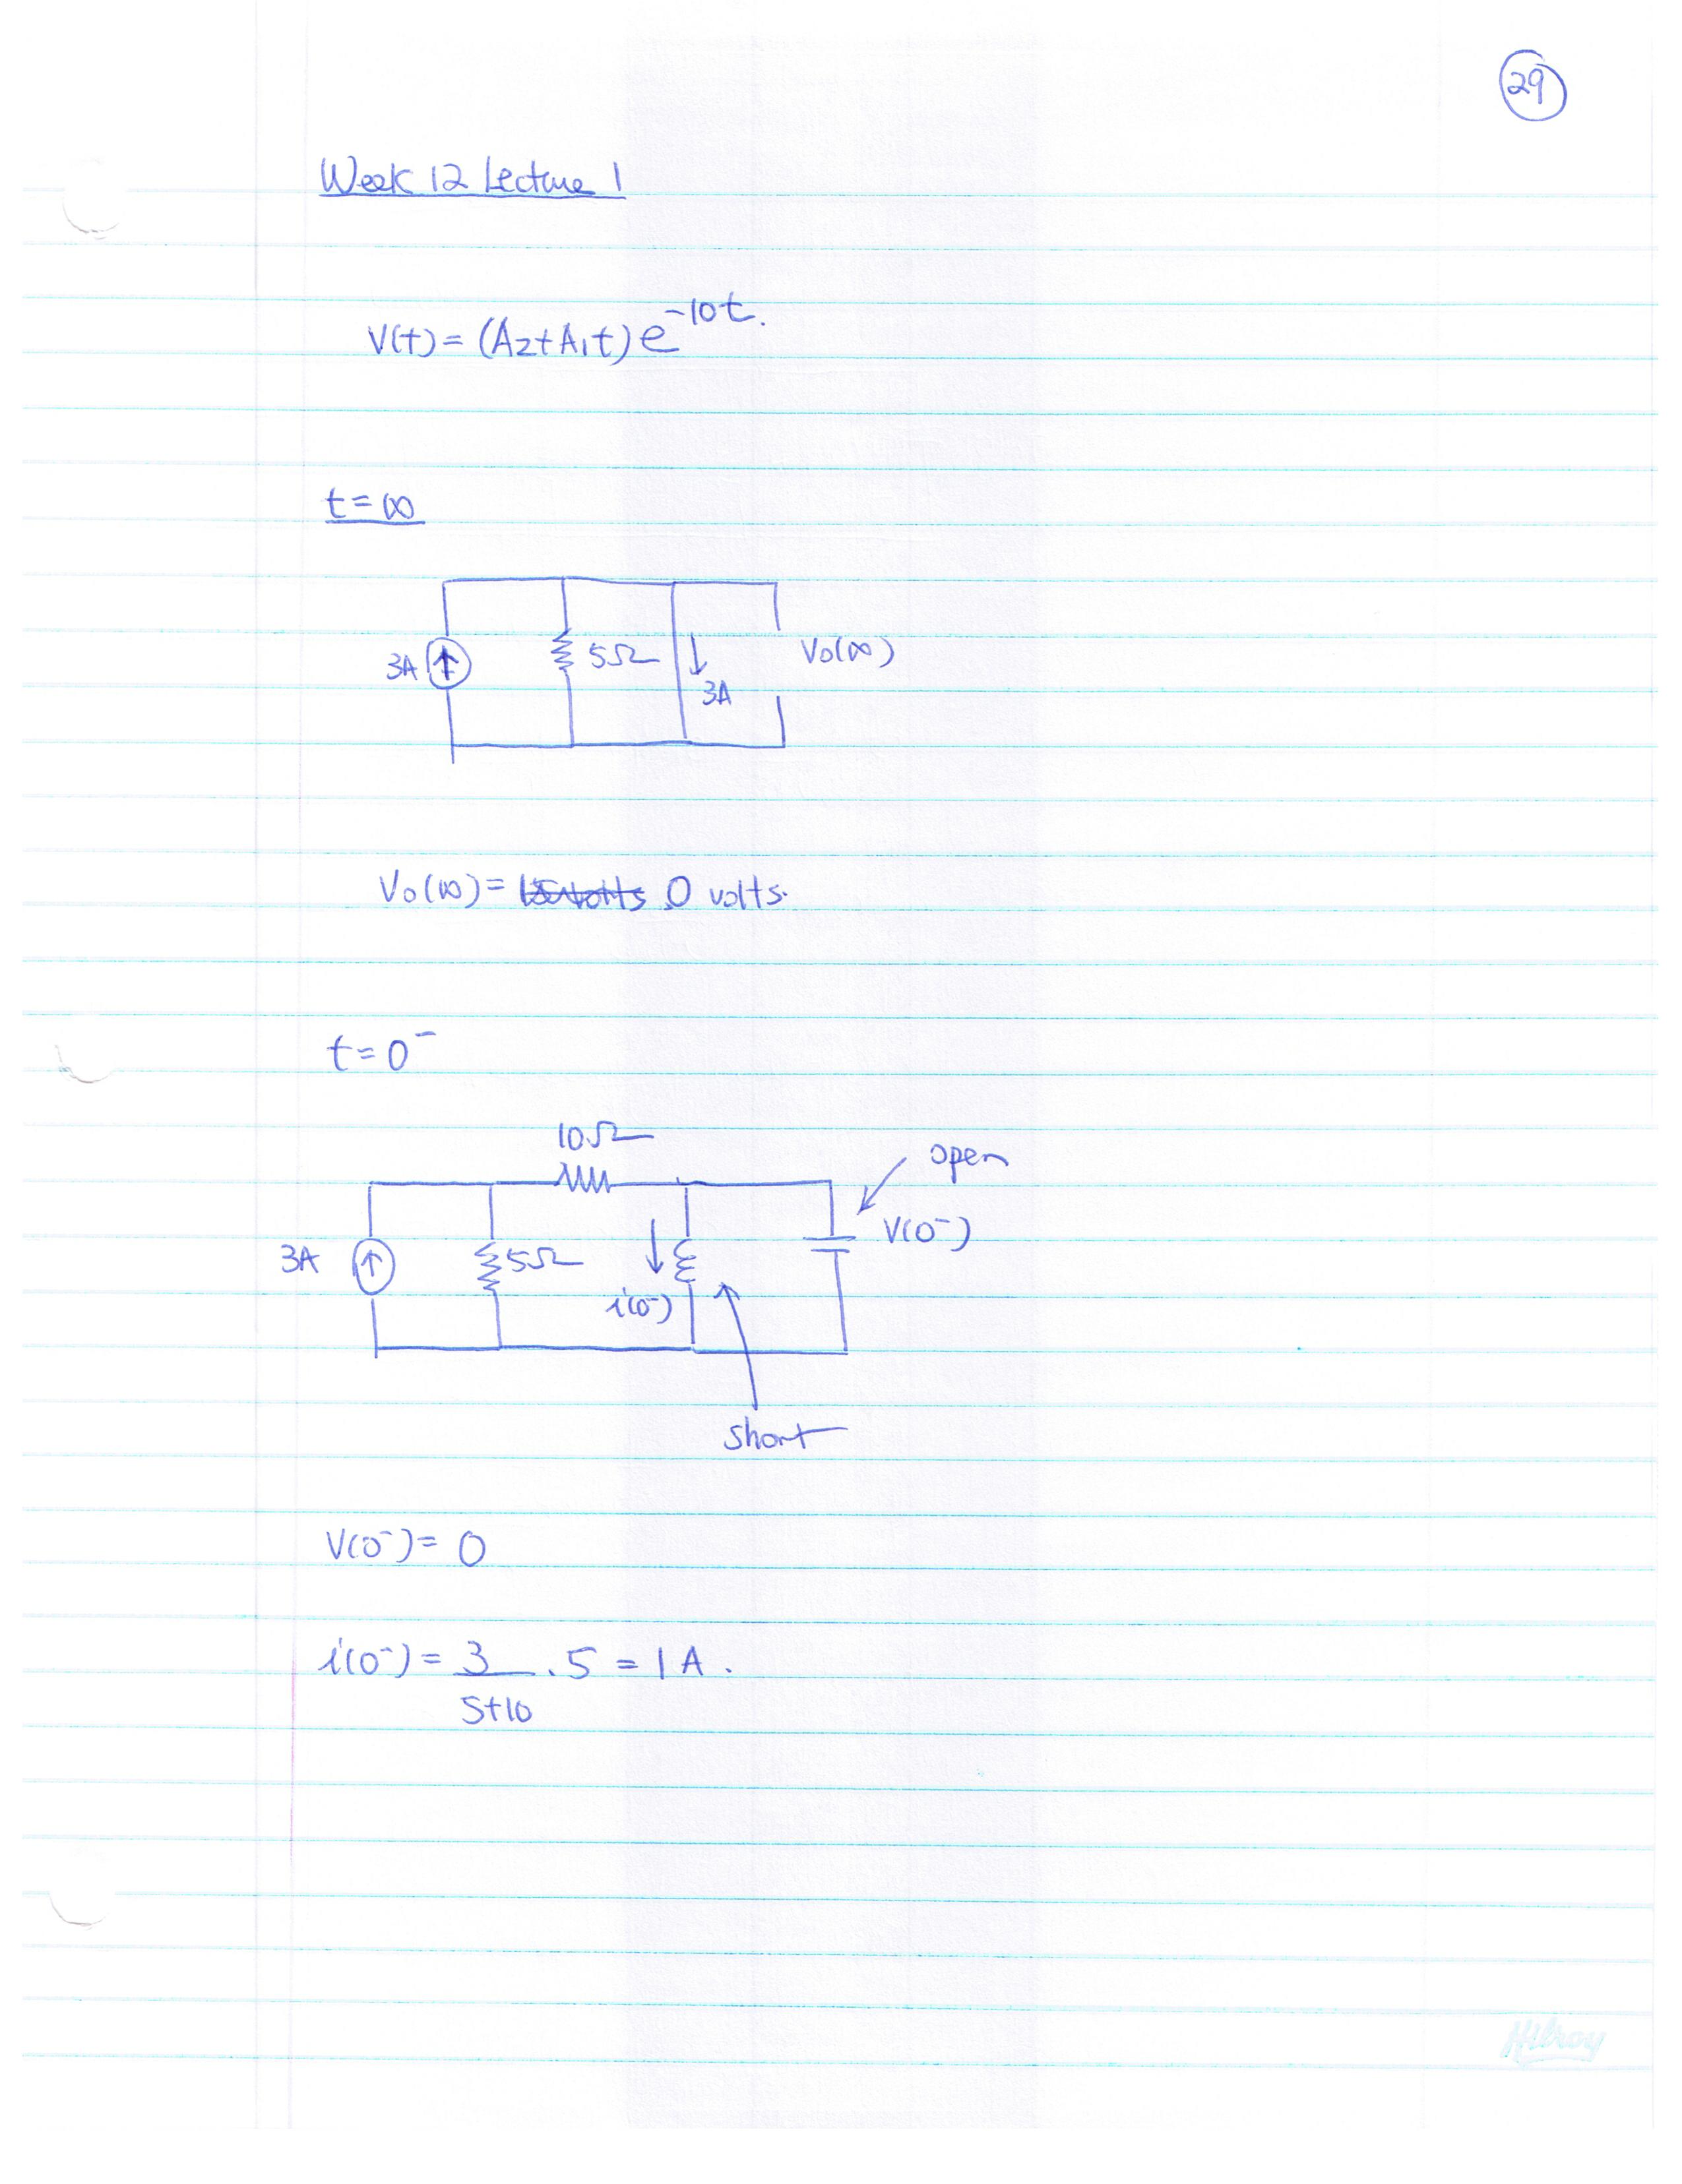 29
Week 12 Lecture 1
V(t) = (A2+A1t) e^-10t.
t = ∞
3A 5Ω 3A Vo(∞)
Vo(∞) = 0 volts.
t = 0⁻
10Ω
open
3A 5Ω i(0⁻) V(0⁻)
short
V(0⁻) = 0
i(0⁻) = 3 . 5 = 1 A .
5+10
Hilroy